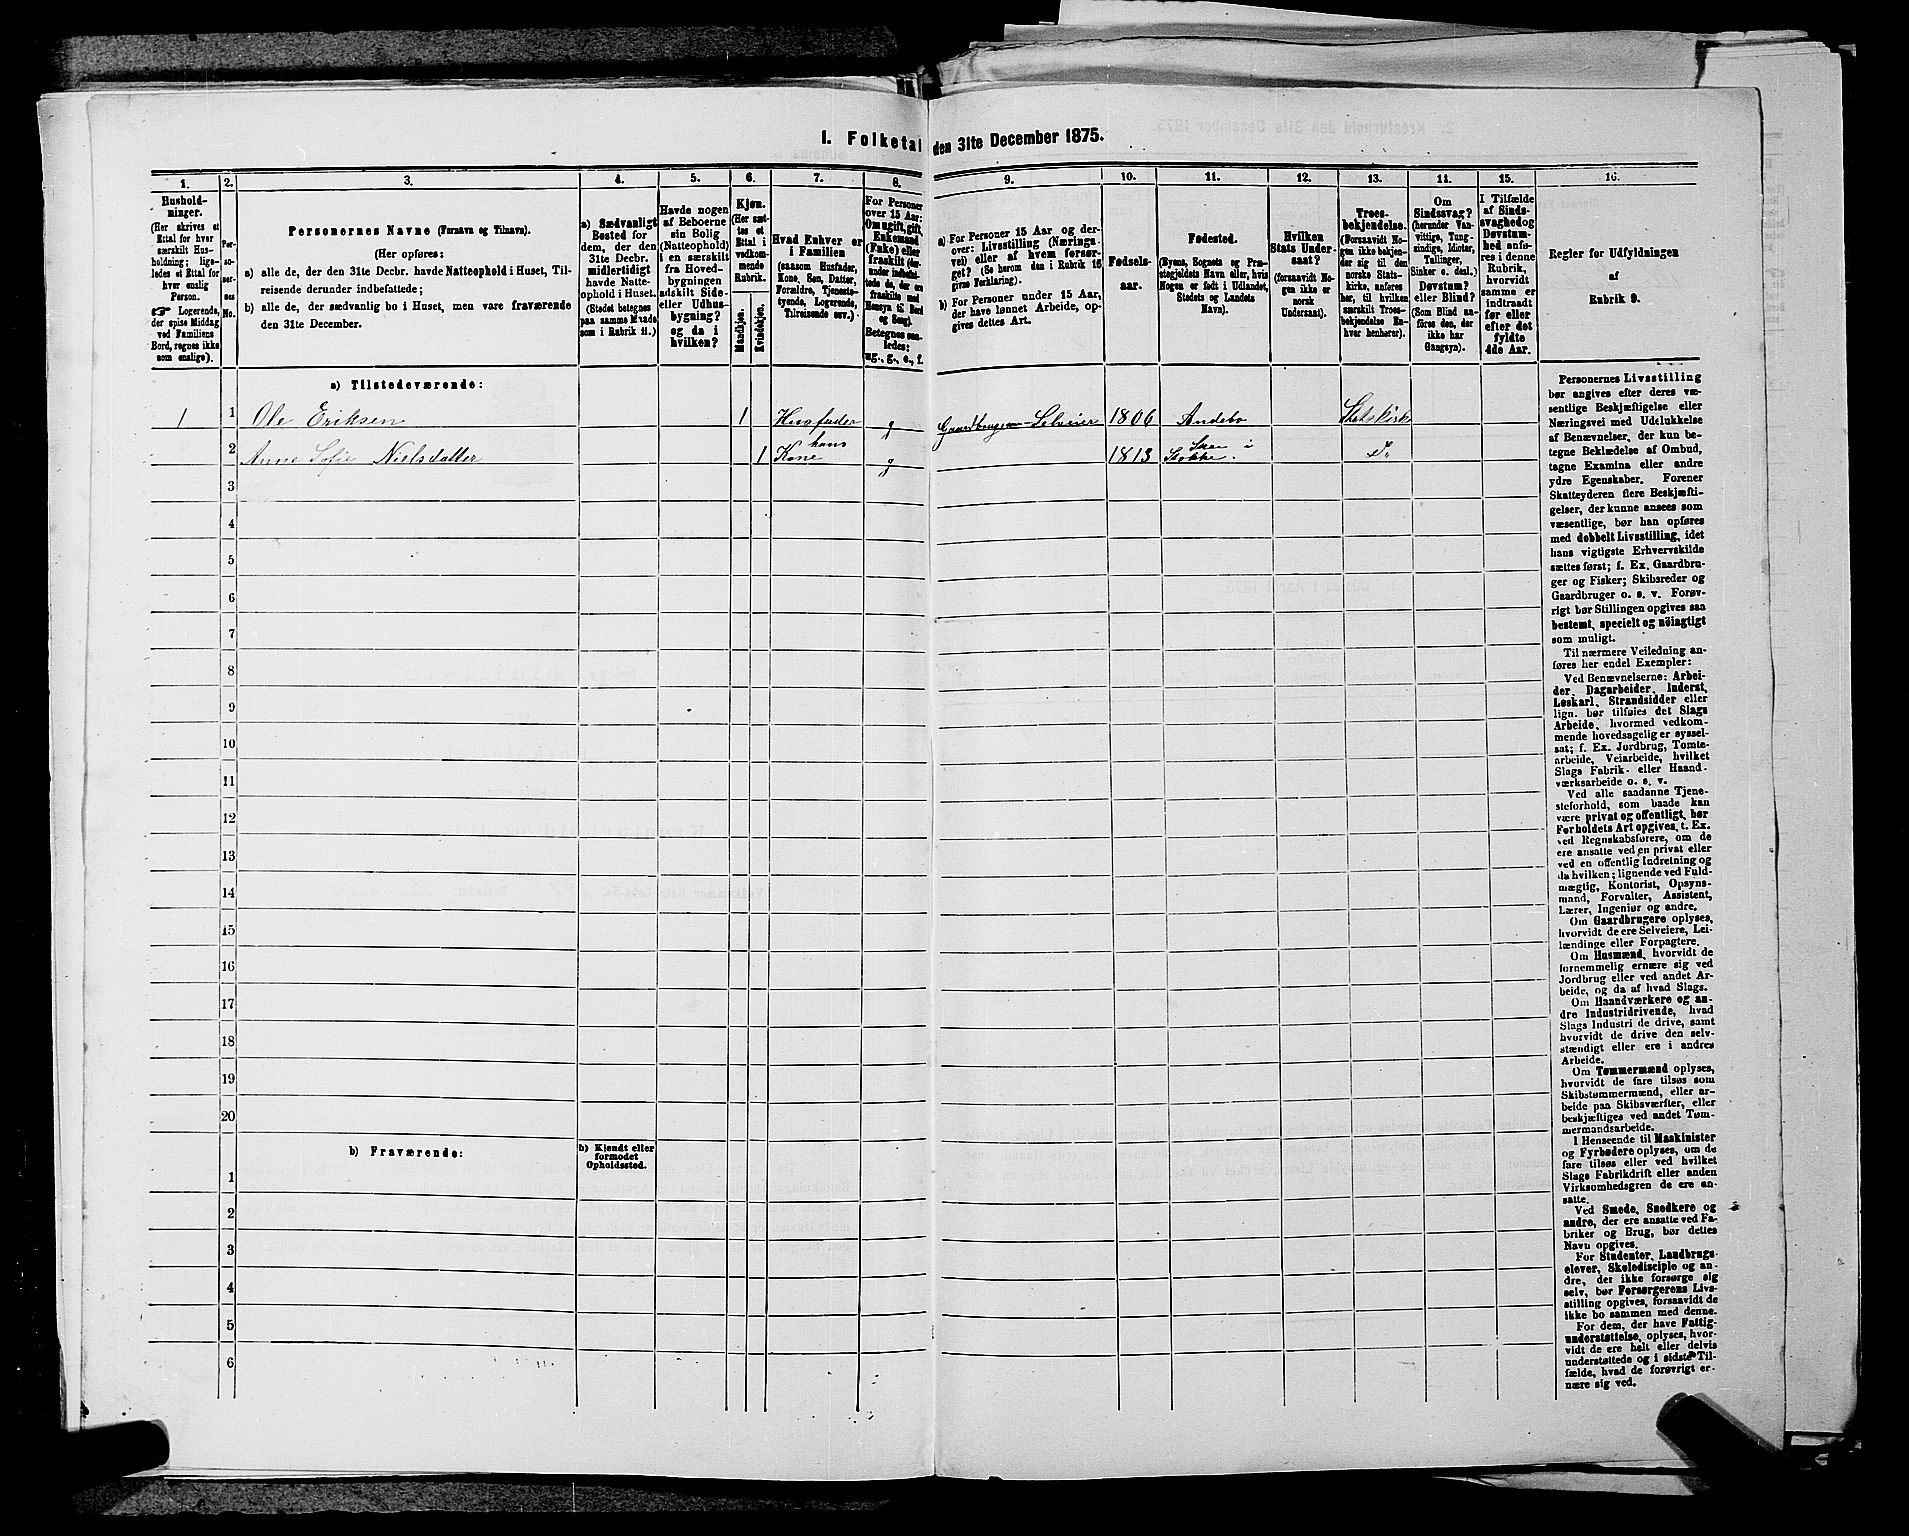 1. Folketal den 31te December 1875.
1.
Hushold-
ninger.
(Her skrives et
Ettal for hver
særskilt Hus-
holdning; lige-
ledes et Ettal for
hver enslig
Person.
☞ Logerende,
der spise Middag
ved Familiens
Bord, regnes ikke
som enslige).
2.
Per-
so-
ner-
nes
No.
3.
Personernes Navne (Fornavn og Tilnavn).
(Her opføres:
a) alle de, der den 31te Decbr. havde Natteophold i Huset, Til-
reisende derunder indbefattede;
b) alle de, der sædvanlig bo i Huset, men vare fraværende
den 31te December.
4.
a) Sædvanligt
Bosted for
dem, der den
31te Decbr.
midlertidigt
havde Natte-
ophold i Huset.
(Stedet betegnes
paa samme Maade
som i Rubrik 11.)
5.
Havde nogen
af Beboerne
sin Bolig
(Natteophold)
i en særskilt
fra Hoved-
bygningen
adskilt Side-
eller Udhus-
bygning?
og da i
hvilken?
6.
Kjøn.
(Her sæt-
tes et
Ettal i
vedkom-
mende
Rubrik.
Mandkjøn.
Kvindekjøn.
7.
Hvad Enhver er
i Familien
(saasom Husfader,
Kone, Søn, Datter,
Forældre, Tjeneste-
tyende, Logerende,
Tilreisende osv.)
8.
For Personer
over 15 Aar:
Om ugift, gift,
Enkemand
(Enke) eller
fraskilt (der-
under indbefat-
tede de, der ere
fraskilte med
Hensyn til Bord
og Seng).
Betegnes saa-
ledes:
ug., g., e., f.
9.
a) For Personer 15 Aar og der-
over: Livsstilling (Nærings-
vei) eller af hvem forsør-
get? (Se herom den i Rubrik 16
givne Forklaring).
b) For Personer under 15 Aar,
der have lønnet Arbeide, op-
gives dettes Art.
10.
Fødsels-
aar.
11.
Fødested.
(Byens, Sognets og Præ-
stegjeldets Navn eller, hvis
Nogen er født i Udlandet,
Stedets og Landets
Navn).
12.
Hvilken
Stats Under-
saat?
(forsaavidt No-
gen ikke er
norsk
Undersaat).
13.
Troes-
bekjendelse.
(Forsaavidt No-
gen ikke bekjen-
der sig til den
norske Stats-
kirke, anføres
her, til hvilken
særskilt Troes-
bekjendelse En-
hver henhører).
14.
Om
Sindssvag?
(herunder Van-
vittige, Tung-
sindige, Idioter,
Tullinger,
Sinker o. desl.)
Døvstum?
eller Blind?
(Som Blind an-
føres den, der
ikke har
Gangsyn).
15.
I Tilfælde
af Sinds-
svaghed og
Døvstum-
hed anfø-
res i denne
Rubrik,
hvorvidt
samme er
indtraadt
før eller
efter det
fyldte
4de Aar.
16.
Regler for Udfyldningen
af
Rubrik 9.
a) Tilstedeværende:
1 1 Ole Eriksen 1 Husfader g Gaardbruger-Selveier 1806 Andebo Statskirke
2 Anne Sofie Nielsdatter 1 hans Kone g 1813 i Stokke. do
3
4
5
6
7
8
9
10
11
12
13
14
15
16
17
18
19
20
b) Fraværende:
b) Kjendt eller
formodet
Opholdssted.
1
2
3
4
5
6
Personernes Livsstilling
bør angives efter deres væ-
sentlige Beskjæftigelse eller
Næringsvei med Udelukkelse
af Benævnelser, der kun be-
tegne Beklædelse af Ombud,
tagne Examina eller andre
ydre Egenskaber. Forener
Skatteyderen flere Beskjæfti-
gelser, der kunne ansees som
væsentlige, bør han opføres
med dobbelt Livsstilling, idet
hans vigtigste Erhvervskilde
sættes først; f. Ex. Gaardbru-
ger og Fisker; Skibsreder og
Gaardbruger o. s. v. Forøv-
rigt bør Stillingen opgives saa
bestemt, specielt og nöiagtigt
som muligt.
Til nærmere Veiledning an-
føres her endel Exempler:
Ved Benævnelserne: Arbei-
der, Dagarbeider, Inderst,
Løskarl, Strandsidder eller
lign. bør tilføies det Slags
Arbeide, hvormed vedkom-
mende hovedsagelig er syssel-
sat; f. Ex. Jordbrug, Tomte-
arbeide, Veiarbeide, hvilket
Slags Fabrik- eller Haand-
værksarbeide o. s. v.
Ved alle saadanne Tjene-
steforhold, som baade kan
være privat og offentligt, bør
Forholdets Art opgives, t. Ex.
ved Regnskabsførere, om de
ere ansatte ved en privat eller
ved en offentlig Indretning og
da hvilken; lignende ved Fuld-
mægtig, Kontorist, Opsyns-
mand, Forvalter, Assistent,
Lærer, Ingeniør og andre.
Om Gaardbrugere oplyses,
hvorvidt de ere Selveiere, Lei-
lændinge eller Forpagtere.
Om Husmænd, hvorvidt de
fornemmelig ernære sig ved
Jordbrug eller ved andet Ar-
beide, og da af hvad Slags.
Om Haandværkere og an-
dre Industridrivende, hvad
Slags Industri de drive, samt
hvorvidt de drive den selv-
stændigt eller ere i andres
Arbeide.
Om Tømmermænd oplyses,
hvorvidt de fare tilsøs som
Skibstømmermænd, eller ar-
beide paa Skibsværfter, eller
beskjæftiges ved andet Tøm-
mermandsarbeide.
I Henseende til Maskinister
og Fyrbødere oplyses, om de
fare tilsøs eller ved hvilket
Slags Fabrikdrift eller anden
Virksomhedsgren de ere an-
satte.
Ved Smede, Snedkere og
andre, der ere ansatte ved Fa-
briker og Brug, bør dettes
Navn opgives.
For Studenter, Landbrugs-
elever, Skoledisciple og an-
dre, der ikke forsørge sig
selv, bør Forsørgerens Livs-
stilling opgives, forsaavidt de
ikke bo sammen med denne.
For dem, der have Fattig-
understøttelse, oplyses, hvor-
vidt de ere helt eller delvis
understøttede og i sidste Til-
fælde, hvad de forøvrigt er-
nære sig ved.